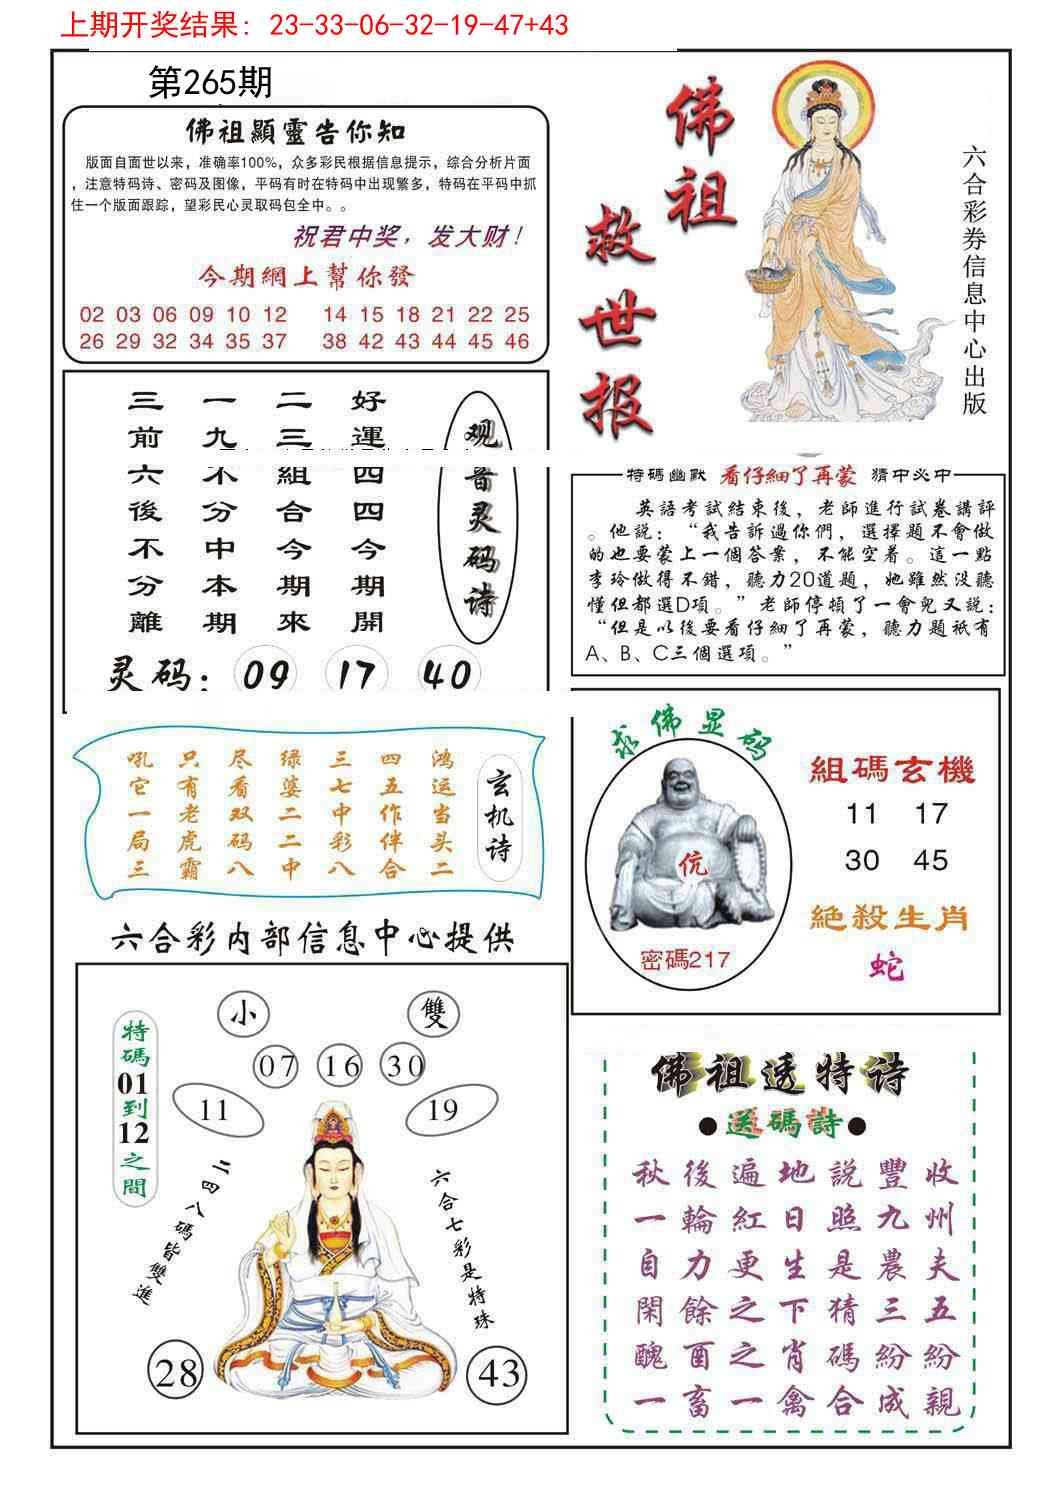 上期开奖结果：23-33-06-32-19-47+43
第265期
佛祖顯靈告你知
版面自面世以来，准确率100%，众多彩民根据信息提示，综合分析片面
，注意特码诗、密码及图像，平码有时在特码中出现繁多，特码在平码中抓
住一个版面跟踪，望彩民心灵取码包全中。。
祝君中奖，发大财！
今期網上幫你發
02 03 06 09 10 12 14 15 18 21 22 25
26 29 32 34 35 37 38 42 43 44 45 46
佛祖
救世报
六合彩券信息中心出版
观音灵码诗
好運四四今期開
二三組合今期來
一九不分中本期
三前六後不分離
灵码：09 17 40
特碼幽默 看仔細了再蒙 猜中必中
英語考試結束後，老師進行試卷講評
。他説：“我告訴過你們，選擇題不會做
的也要蒙上一個答案，不能空着。這一點
李玲做得不錯，聽力20道題，她雖然没聽
懂但都選D項。”老師停頓了一會兒又説：
“但是以後要看仔細了再蒙，聽力題衹有
A、B、C三個選項。”
玄机诗
鸿运当头二
四五作伴合
三七中彩八
绿婆二二中
尽看双码八
只有老虎霸
吼它一局三
求佛显码
伉
密碼217
組碼玄機
11 17
30 45
絶殺生肖
蛇
六合彩内部信息中心提供
特碼01到12之間
小 雙
07 16 30
11 19
二四八碼皆雙進
六合七彩是特珠
28 43
佛祖透特诗
●送碼詩●
秋後遍地説豐收
一輪紅日照九州
自力更生是農夫
閑餘之下猜三五
醜酉之肖碼紛紛
一畜一禽合成親